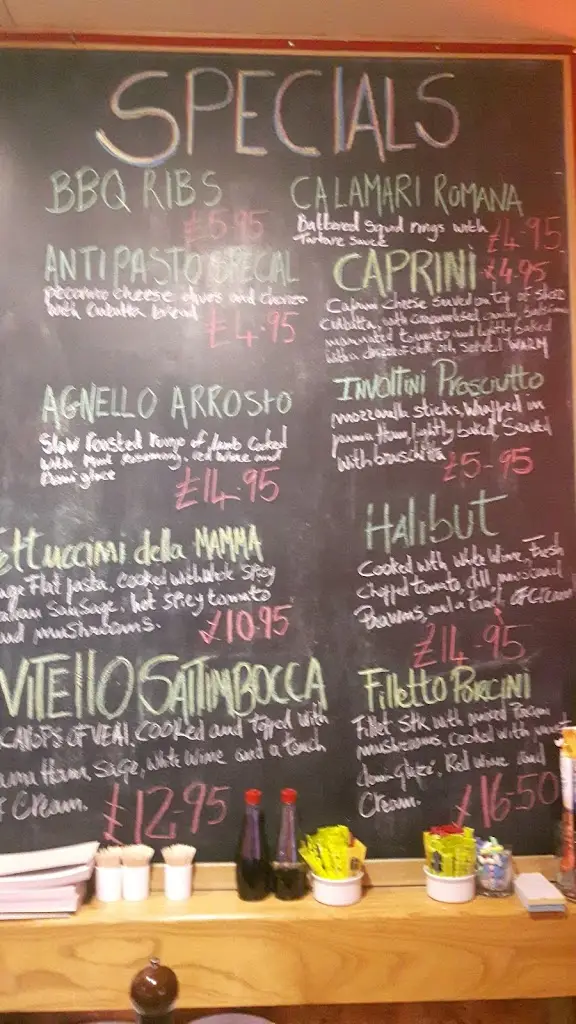 SPECIALS
BBQ RIBS
£5.95
ANTIPASTO SPECIAL
pecorino cheese olives and chorizo
with Ciabatta bread
£4.95
AGNELLO ARROSTO
Slow roasted rump of lamb Cooked
with Mint Rosemary, red wine and
Demi glace
£14.95
ettuccini della MAMMA
Flat pasta, cooked with whole Spicy
Sausage, hot spicy tomato
mushrooms.
£10.95
VITELLO SALTIMBOCCA
OF VEAL, Cooked and Topped with
Ham, Sage, White Wine and a touch
Cream.
£12.95
CALAMARI ROMANA
Battered Squid rings with
Tartare sauce
£4.95
CAPRINI £4.95
Caprini Cheese Served on Top of
Ciabatta, with caramelised
marinated tomato and lightly baked
with a of chilli oil, served WARM
INVOLTINI PROSCIUTTO
mozzarella sticks, Wrapped in
parma Ham, lightly baked, Served
with bruschetta
£5-95
HALIBUT
Cooked with White Wine, Fresh
Chopped tomato, dill and
Prawns, and a touch OF Cream
£14-95
FILLETTO PORCINI
Fillet Stk with mixed Porcini
mushrooms, Cooked with
demi-glaze, Red Wine and
Cream.
£16-50